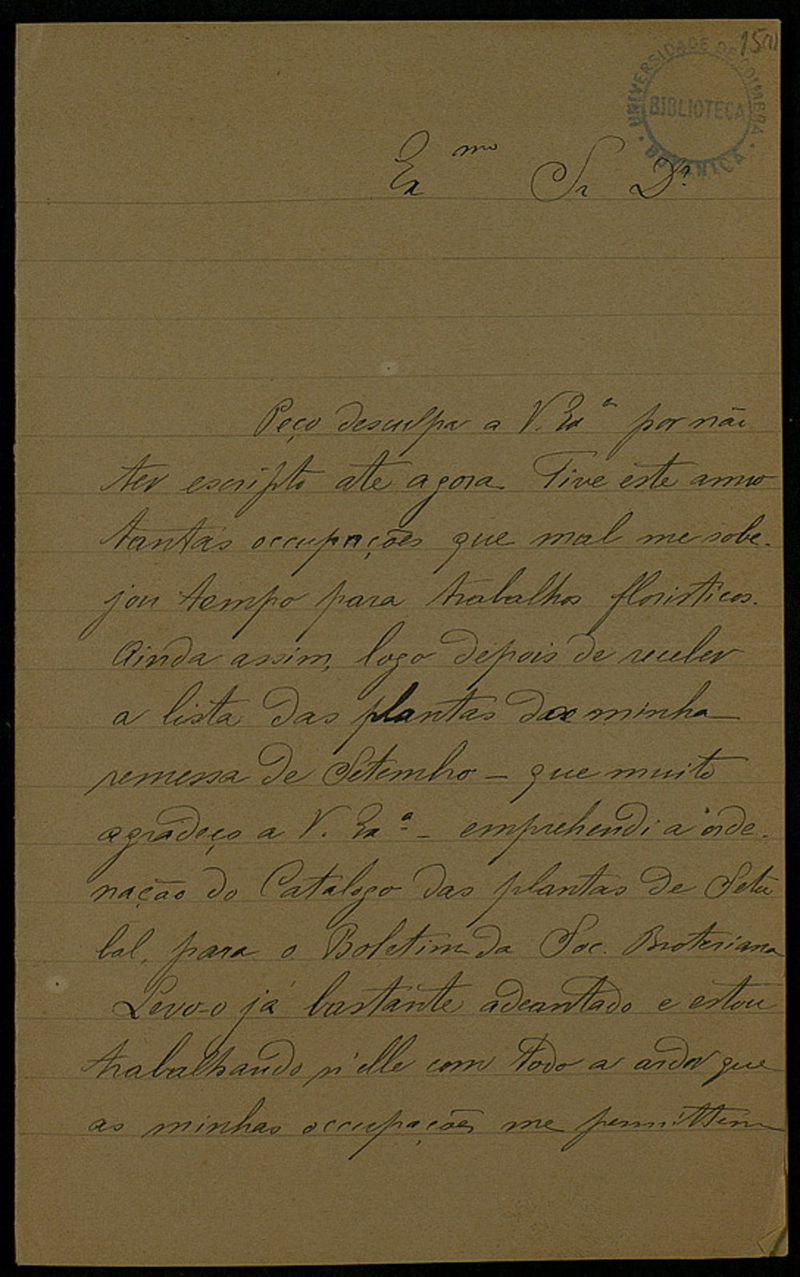 15(1)
UNIVERSIDADE DE COIMBRA
BIBLIOTECA
BOTANICA
Ex.mo Sr Dr
Peço desculpa a V. Exa por não
ter escripto até agora. Tive este anno
tantas occupações que mal me sobe-
jou tempo para trabalhos floristicos.
Ainda assim, logo depois de receber
a lista das plantas da minha
remessa de Setembro – que muito
agradeço a V. Exa – emprehendi a orde-
nação do Catalogo das plantas de Setu
bal, para o Boletim da Soc. Broteriana
Levo-o já bastante adeantado e estou
trabalhando n'elle com todo a ardor que
as minhas occupações me permittem